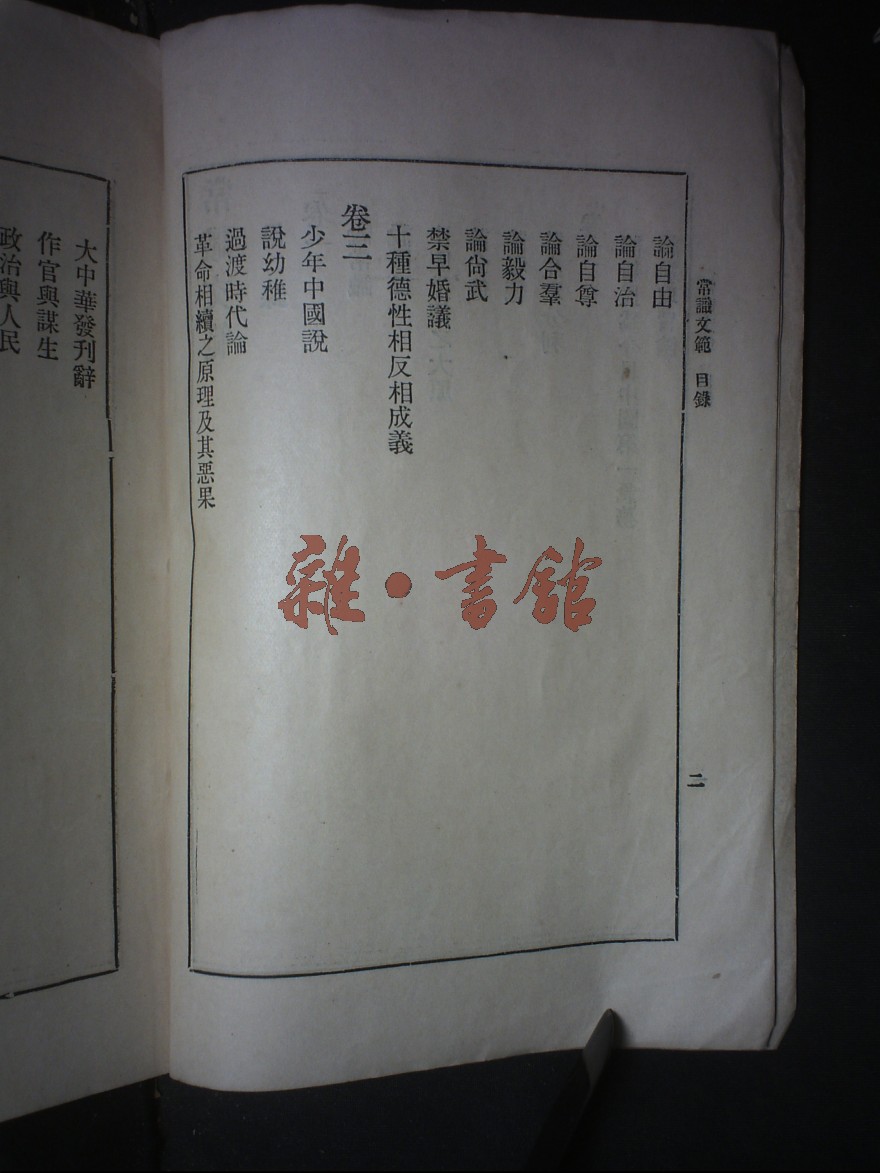 常識文範 目錄
二
論自由
論自治
論自尊
論合羣
論毅力
論尙武
禁早婚議
十種德性相反相成義
卷三
少年中國說
說幼稚
過渡時代論
革命相續之原理及其惡果
大中華發刊辭
作官與謀生
政治與人民
雜·書館